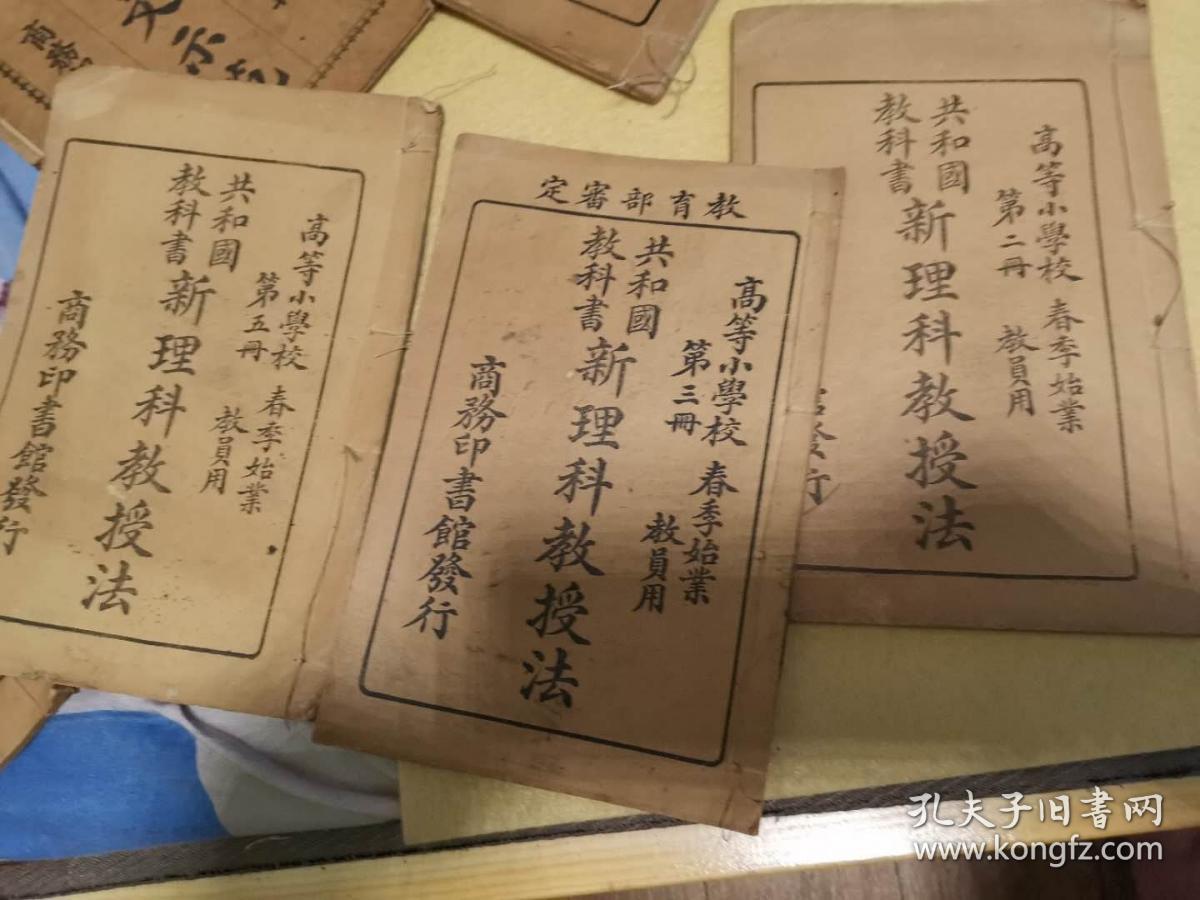 商務
高等小學校 春季始業
第五冊 教員用
共和國
教科書
新理科教授法
商務印書館發行
定審部育教
高等小學校 春季始業
第三冊 教員用
共和國
教科書
新理科教授法
商務印書館發行
高等小學校 春季始業
第二冊 教員用
共和國
教科書
新理科教授法
館發行
孔夫子旧书网
www.kongfz.com